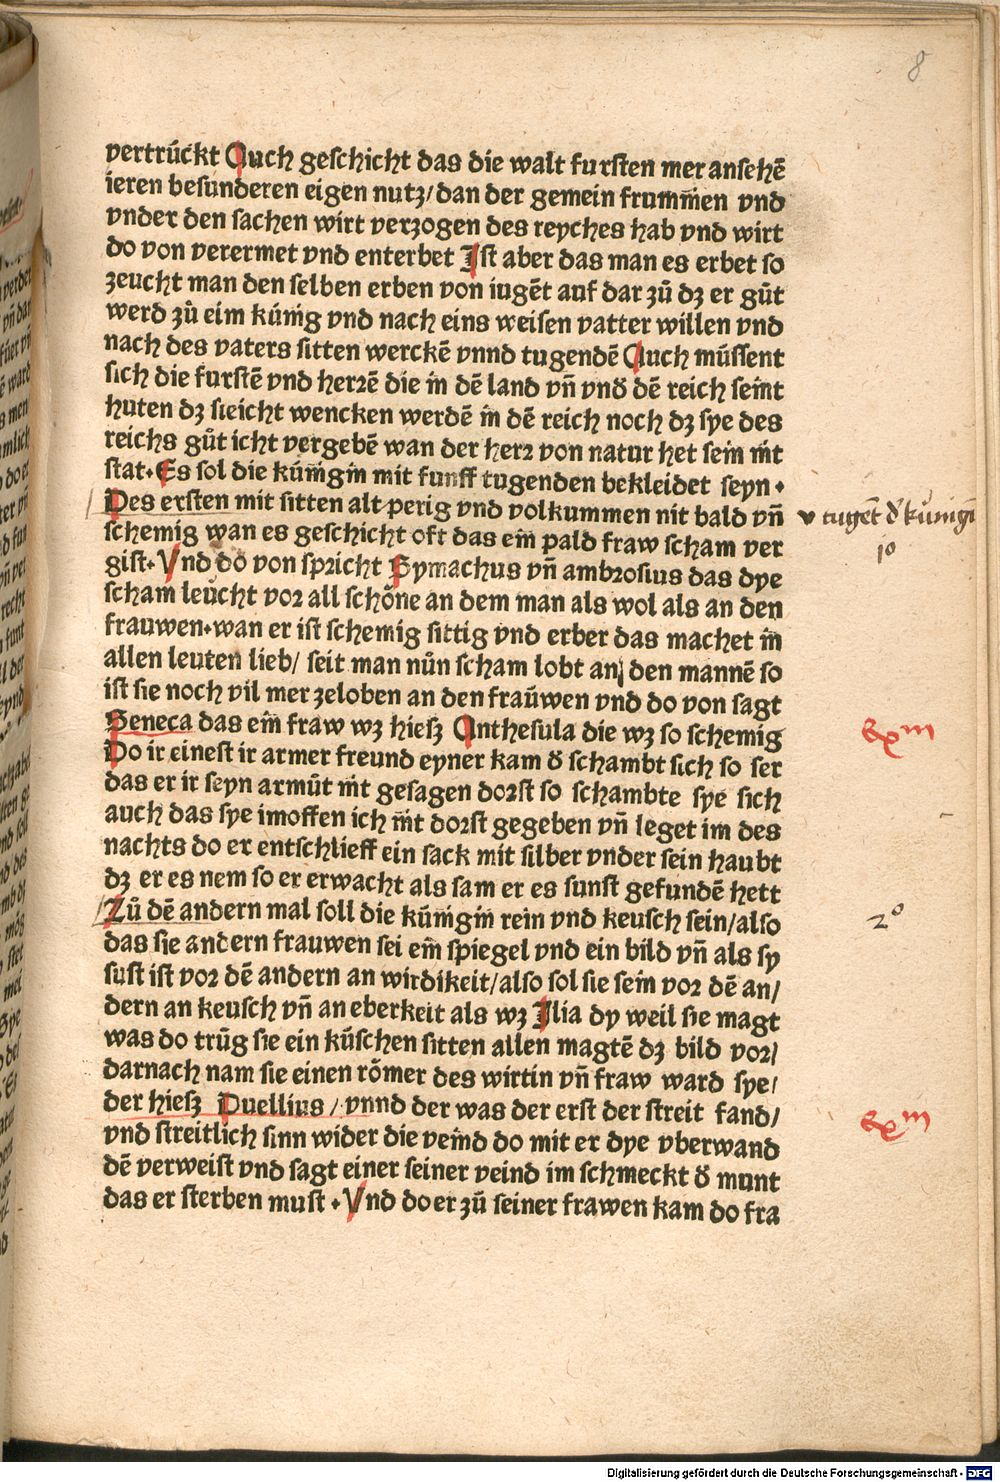 8
vertrúckt Auch geschicht das die walt fursten mer ansehē
ieren besunderen eigen nutz/dan der gemein frum̄en vnd
vnder den sachen wirt verzogen des reyches hab vnd wirt
do von verermet vnd enterbet Ist aber das man es erbet so
zeucht man den selben erben von iugēt auf dar zů dz er gůt
werd zů eim kúnig vnd nach eins weisen vatter willen vnd
nach des vaters sitten werckē vnnd tugendē Auch můssent
sich die furstē vnd herrē die in dē land vn̄ vnd̕ dē reich seint
huten dz sieicht wencken werdē in dē reich noch dz sye des
reichs gůt icht vergebē wan der herr von natur het sein nit
stat. Es sol die kúnigin mit funff tugenden bekleidet seyn.
Des ersten mit sitten alt perig vnd volkummen nit bald vn̄
v tugēt d̕ kunigī
schemig wan es geschicht oft das ein pald fraw scham ver
1o
gist. Vnd do von spricht Symachus vn̄ ambrosius das dye
scham leúcht vor all schöne an dem man als wol als an den
frauwen.wan er ist schemig sittig vnd erber das machet in
allen leuten lieb/ seit man nůn scham lobt an den mannē so
ist sie noch vil mer zeloben an den fraúwen vnd do von sagt
Seneca das ein fraw wz hiesz Anthesula die wz so schemig
exm
Do ir einest ir armer freund eyner kam d̕ schambt sich so ser
das er ir seyn armůt nit gesagen dorst so schambte sye sich
auch das sye im offen ich nit dorst gegeben vn̄ leget im des
nachts do er entschlieff ein sack mit silber vnder sein haubt
dz er es nem so er erwacht als sam er es sunst gefundē hett
Zů dē andern mal soll die kúnigin rein vnd keusch sein/also
2o
das sie andern frauwen sei ein spiegel vnd ein bild vn̄ als sy
sust ist vor dē andern an wirdikeit/also sol sie sein vor dē an/
dern an keusch vn̄ an eberkeit als wz Ilia dy weil sie magt
was do trůg sie ein kúschen sitten allen magtē dz bild vor/
darnach nam sie einen römer des wirtin vn̄ fraw ward sye/
der hiesz Duellius/ vnnd der was der erst der streit fand/
exm
vnd streitlich sinn wider die veind do mit er dye vberwand
dē verweist vnd sagt einer seiner veind im schmeckt d̕ munt
das er sterben must. Vnd do er zů seiner frawen kam do fra
Digitalisierung gefördert durch die Deutsche Forschungsgemeinschaft - DFG